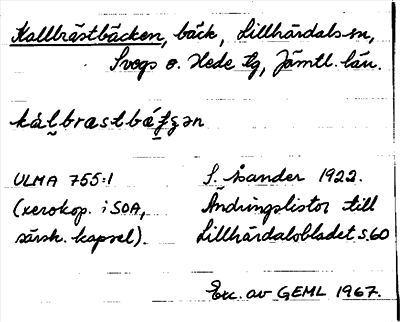 Kallbrästbäcken, bäck, Lillhärdals sn,
Svegs o. Hede tg, Jämtl. län.
kál̬bræstbǽƭʂən
ULMA 755:1 S. Lander 1922.
(xerokop. i SOA, Ändringslistor till
särsk. kapsel). Lillhärdalsbladet, s. 60
Exc. av GEML 1967.